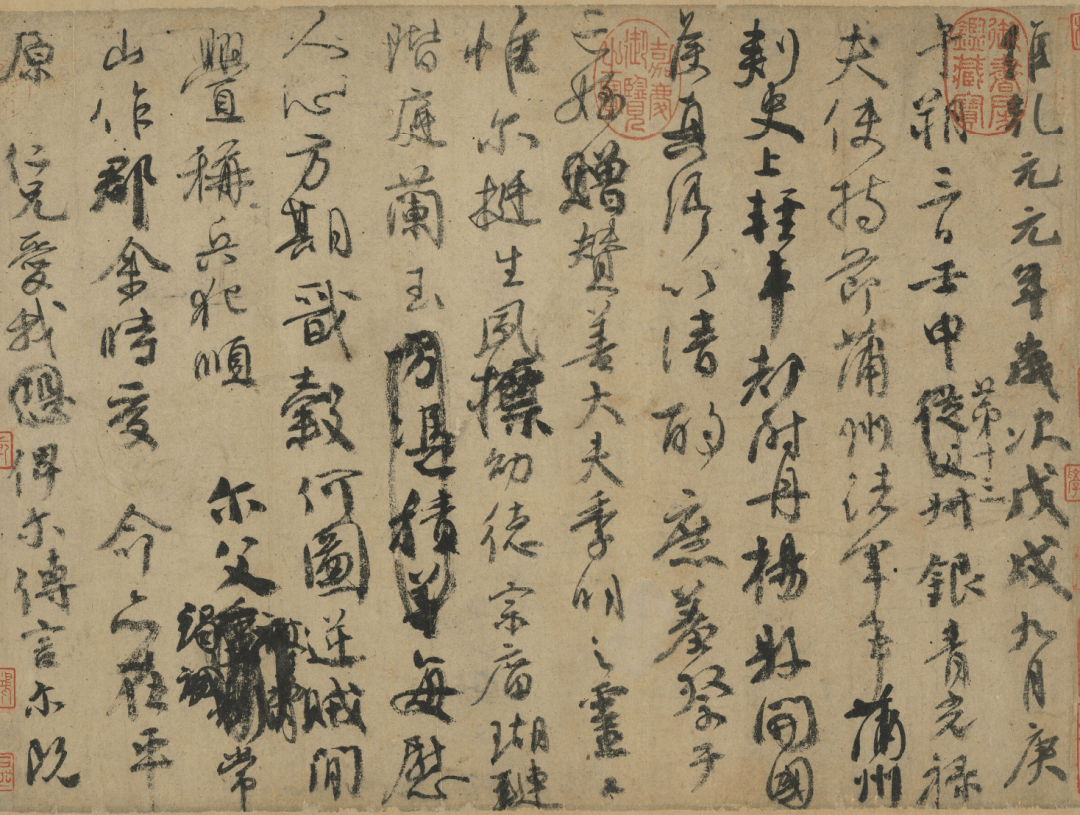 維乾元元年歲次戊戌九月庚
午朔三日壬申第十三從父叔銀青光祿
夫使持節蒲州諸軍事蒲州
刺史上輕車都尉丹楊縣開國
侯真卿以清酌庶羞祭于
亡姪贈贊善大夫季明之靈曰
惟尔挺生夙標幼德宗廟瑚璉
階庭蘭玉方憑積善每慰
人心方期戩穀何圖逆賊閒
釁稱兵犯順尔父竭誠常
山作郡余時受命亦在平
原仁兄愛我恐俾尔傳言尔既
御書房鑑藏寶
嘉慶御覽之寶